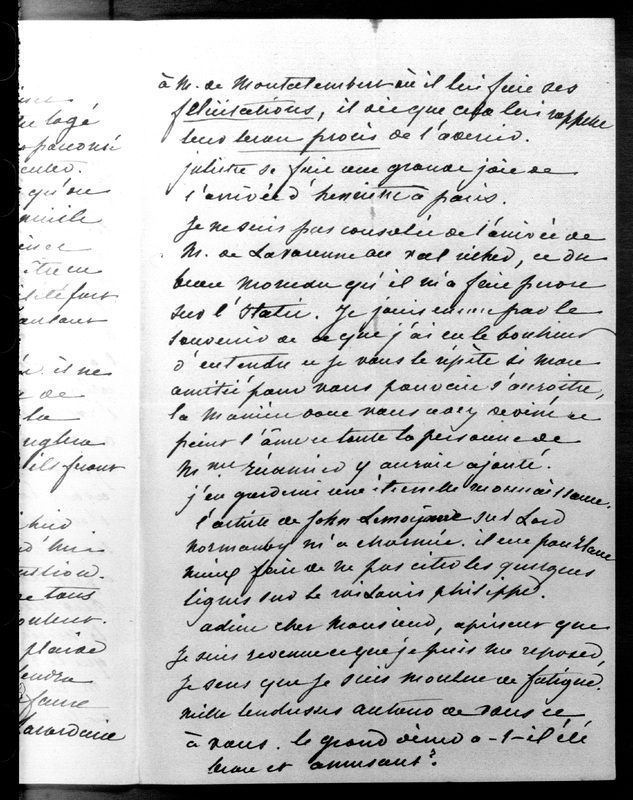 à M. de Montalembert où il lui fait ses
félicitations, il dit que cela lui rappelle
leur beau procès de l'avenir.
juliette se fait une grande joie de
l'arrivée d'henriette à paris.
Je ne suis pas consolée de l'arrivée de
M. de Lavarenne au val richer, ce du
beau morceau qu'il m'a fait perdre
sur l'Italie. Je jouis encore par le
souvenir de ce que j'ai eu le bonheur
d'entendre et je vous le répète si mon
amitié pour vous pouvait s'accroître,
la manière dont vous avez deviné et
peint l'âme et toute la personne de
Mme Récamier y aurait ajouté.
j'en garderai une éternelle reconnaissance.
l'article de John Lemoinne sur Lord
normanby m'a charmée. il eut pourtant
mieux fait de ne pas citer les quelques
lignes sur le roi Louis philippe.
adieu cher Monsieur, à présent que
Je suis revenue et que je puis me reposer,
Je sens que Je suis moulue de fatigue.
mille tendresses autour de vous et
à vous. le grand dîner a-t-il été
beau et amusant?
né
logé
qu'on
famille
être en
fort
autant
il ne
de
la
ils feront
tous
plaide
Lacordaire